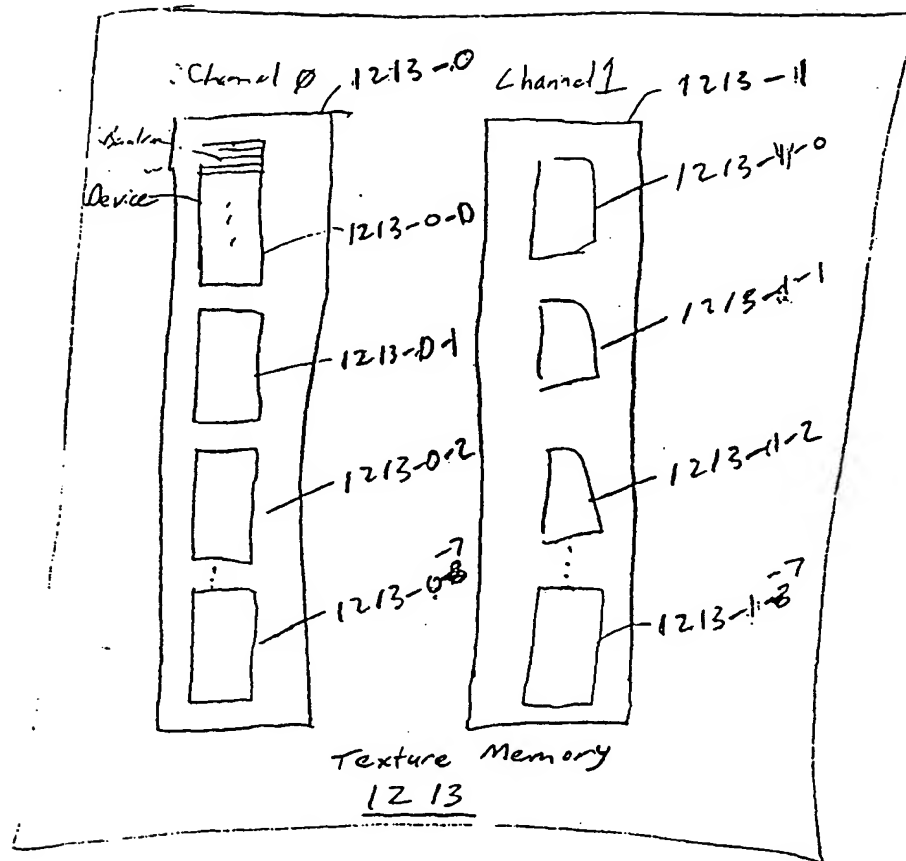 Channel Ø
1213-0
Channel 1
1213-1
Device
1213-0-0
1213-1-0
1213-0-1
1213-1-1
1213-0-2
1213-1-2
1213-0-7
1213-1-7
Texture Memory
1213